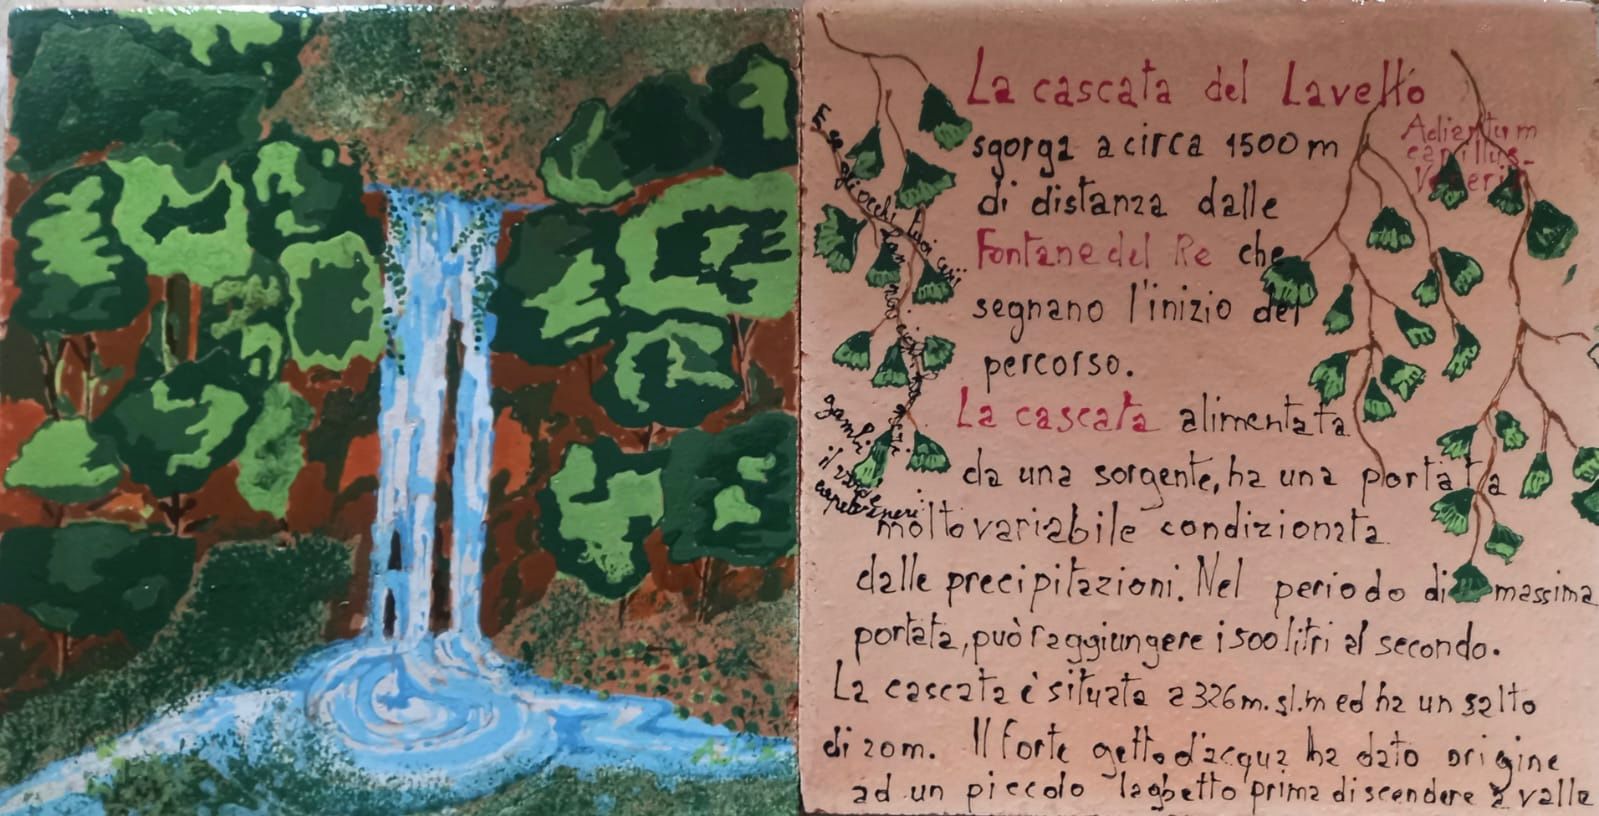 La cascata del Lavello
sgorga a circa 1500 m
di distanza dalle
Fontane del Re che
segnano l'inizio del
percorso.
La cascata alimentata
da una sorgente, ha una portata
molto variabile condizionata
dalle precipitazioni. Nel periodo di massima
portata, può raggiungere i 500 litri al secondo.
La cascata è situata a 326 m. sl.m ed ha un salto
di 20 m. Il forte getto d'acqua ha dato origine
ad un piccolo laghetto prima di scendere a valle
Adiantum
capillus-
Veneris
E se gli occhi tuoi
gambi
il verde